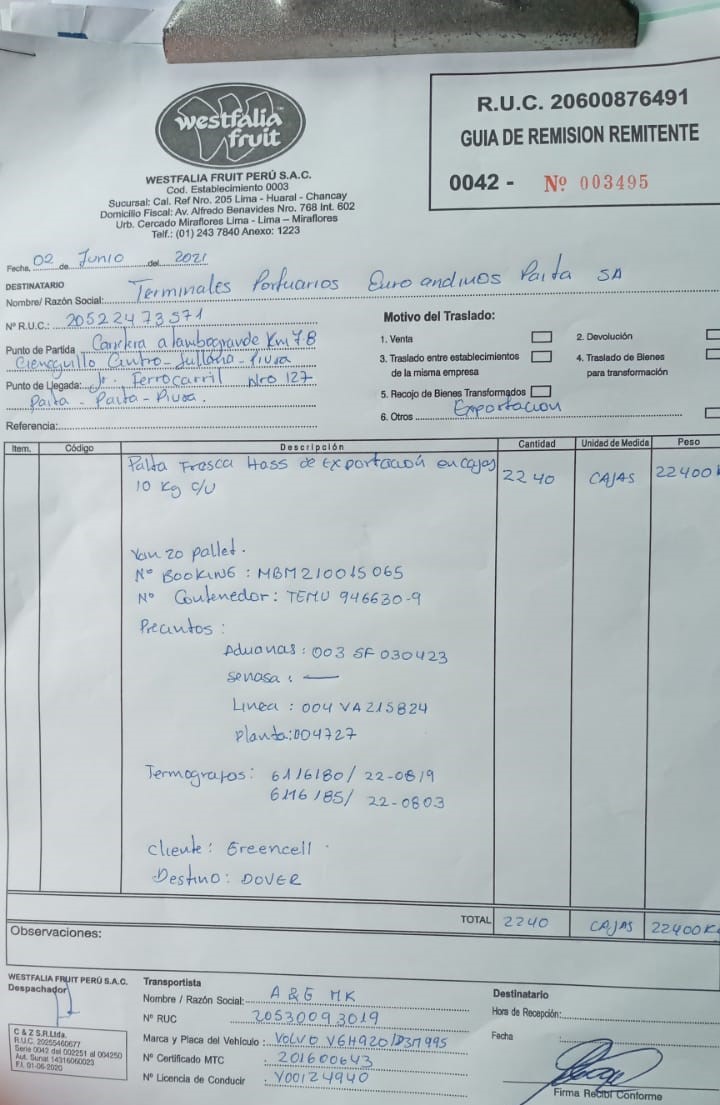 westfalia
fruit
WESTFALIA FRUIT PERÚ S.A.C.
Cod. Establecimiento 0003
Sucursal: Cal. Ref Nro. 205 Lima - Huaral - Chancay
Domicilio Fiscal: Av. Alfredo Benavides Nro. 768 Int. 602
Urb. Cercado Miraflores Lima - Lima – Miraflores
Telf.: (01) 243 7840 Anexo: 1223
R.U.C. 20600876491
GUIA DE REMISION REMITENTE
0042 - Nº 003495
Fecha, 02 de Junio del 2021
DESTINATARIO
Nombre/ Razón Social: Terminales Portuarios Euroandinos Paita SA
Nº R.U.C.: 20522473571
Punto de Partida Carretera a tambogrande Km 7.8
Cieneguillo Centro - Sullana - Piura
Punto de Llegada: Jr. Ferrocarril Nro 127
Paita - Paita - Piura.
Referencia:
Motivo del Traslado:
1. Venta
2. Devolución
3. Traslado entre establecimientos de la misma empresa
4. Traslado de Bienes para transformación
5. Recojo de Bienes Transformados
6. Otros Exportacion
Item. Código Descripción Cantidad Unidad de Medida Peso
Palta Fresca Hass de Exportación en cajas 2240 CAJAS 22400
10 Kg c/u
Van 20 pallet.
Nº BOOKING: MBM210015065
Nº Contenedor: TEMU 946630-9
Precintos:
Aduanas: 003 SF 030423
Senasa: —
Linea: 004 VA215824
Planta: 004727
Termografos: 6116180/ 22-0819
6116185/ 22-0803
Cliente: Greencell
Destino: DOVER
TOTAL 2240 CAJAS 22400 K
Observaciones:
WESTFALIA FRUIT PERÚ S.A.C.
Despachador
C & Z S.R.Ltda.
R.U.C. 20255460677
Serie 0042 del 002251 al 004250
Aut. Sunat 14316060023
F.I. 01-06-2020
Transportista
Nombre / Razón Social: A & G MK
Nº RUC 20530093019
Marca y Placa del Vehículo: VOLVO V6H920/D3M995
Nº Certificado MTC : 201600643
Nº Licencia de Conducir : Y00124940
Destinatario
Hora de Recepción:
Fecha :
Firma Recibí Conforme